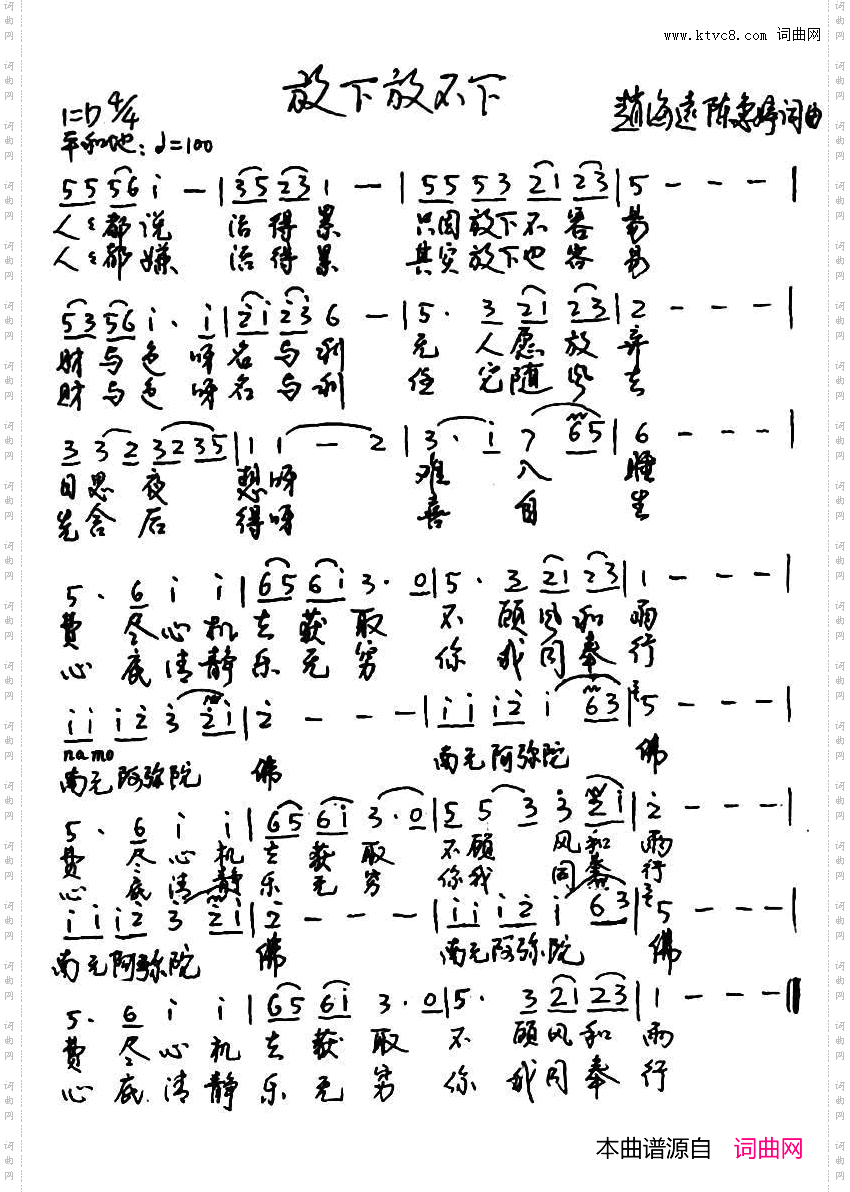 www.ktvc8.com 词曲网
放下放不下
1=D 4/4
趙海遠 陈惠婷词曲
平和地：♩=100
5 5 5 6 i — | 3 5 2 3 1 — | 5 5 5 3 2 1 2 3 | 5 — — — |
人々都说 活得累 只因放下不容易
人々都嫌 活得累 其实放下也容易
5 3 5 6 i · i | 2 i 2 3 6 — | 5 · 3 2 1 2 3 | 2 — — — |
财与色呀名与利 无人愿放弃
财与色呀名与利 任它随风去
3 3 2 3 2 3 5 | 1 1 — 2 | 3 · i 7 6 5 | 6 — — —
日思夜 想呀 难入睡
先舍后 得呀 喜自生
5 · 6 i i | 6 5 6 i 3 · 0 | 5 · 3 2 1 2 3 | 1 — — — |
费尽心机去获取 不顾风和雨
心底清静乐无穷 你我同奉行
i i i 2 3 2 i | 2 — — — | i i i 2 i 6 3 | 5 — — — |
namo
南无阿弥陀 佛 南无阿弥陀 佛
5 · 6 i i | 6 5 6 i 3 · 0 | 5 5 3 3 2 i | 2 — — — |
费尽心机去获取 不顾风和雨
心底清静乐无穷 你我同奉行
i i i 2 3 2 i | 2 — — — | i i i 2 i 6 3 | 5 — — — |
南无阿弥陀 佛 南无阿弥陀 佛
5 · 6 i i | 6 5 6 i 3 · 0 | 5 · 3 2 1 2 3 | 1 — — — ‖
费尽心机去获取 不顾风和雨
心底清静乐无穷 你我同奉行
本曲谱源自 词曲网